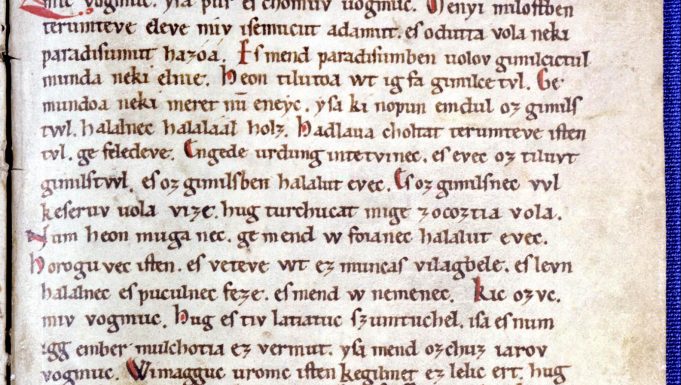 mic vogmuc. yſa pur eſ chomuv uogmuc. Menyi miloſtben
terumteve eleve miv iſemucut adamut. eſ odutta vola neki
paradiſumut hazoa. Eſ mend paradiſumben uolov gimilcictul
munda neki elnie. Heon tilutoa wt ig fa gimilce tvl. Ge
mundoa neki meret nū eneyc. yſa ki nopun emdul oz gimilſ
twl. halalnec halaláál holz. Hadlaua choltat terumteve iſten
tvl. ge feledeve. Engede urdung intetvinec. eſ evec oz tiluvt
gimilſtvvl. eſ oz gimilſben halalut evec. Eſ oz gimilſnec vvl
keſeruv uola vize. hug turchucat mige zocoztia vola.
Num heon muga nec. ge mend w foianec halalut evec.
Horogu vec iſten. eſ veteve wt ez muncaſ vilagbele. eſ levn
halalnec eſ puculnec feze. eſ mend w nemenec. Kic ozvc.
miv vogmuc. Hug eſ tiv latiatuc ſzumtuchel. iſa eſ num
igg ember mulchotia ez vermut. yſa mend ozchuz iarov
vogmuc. Wimagguc uromc iſten kegilmet ez lelic ert. hug